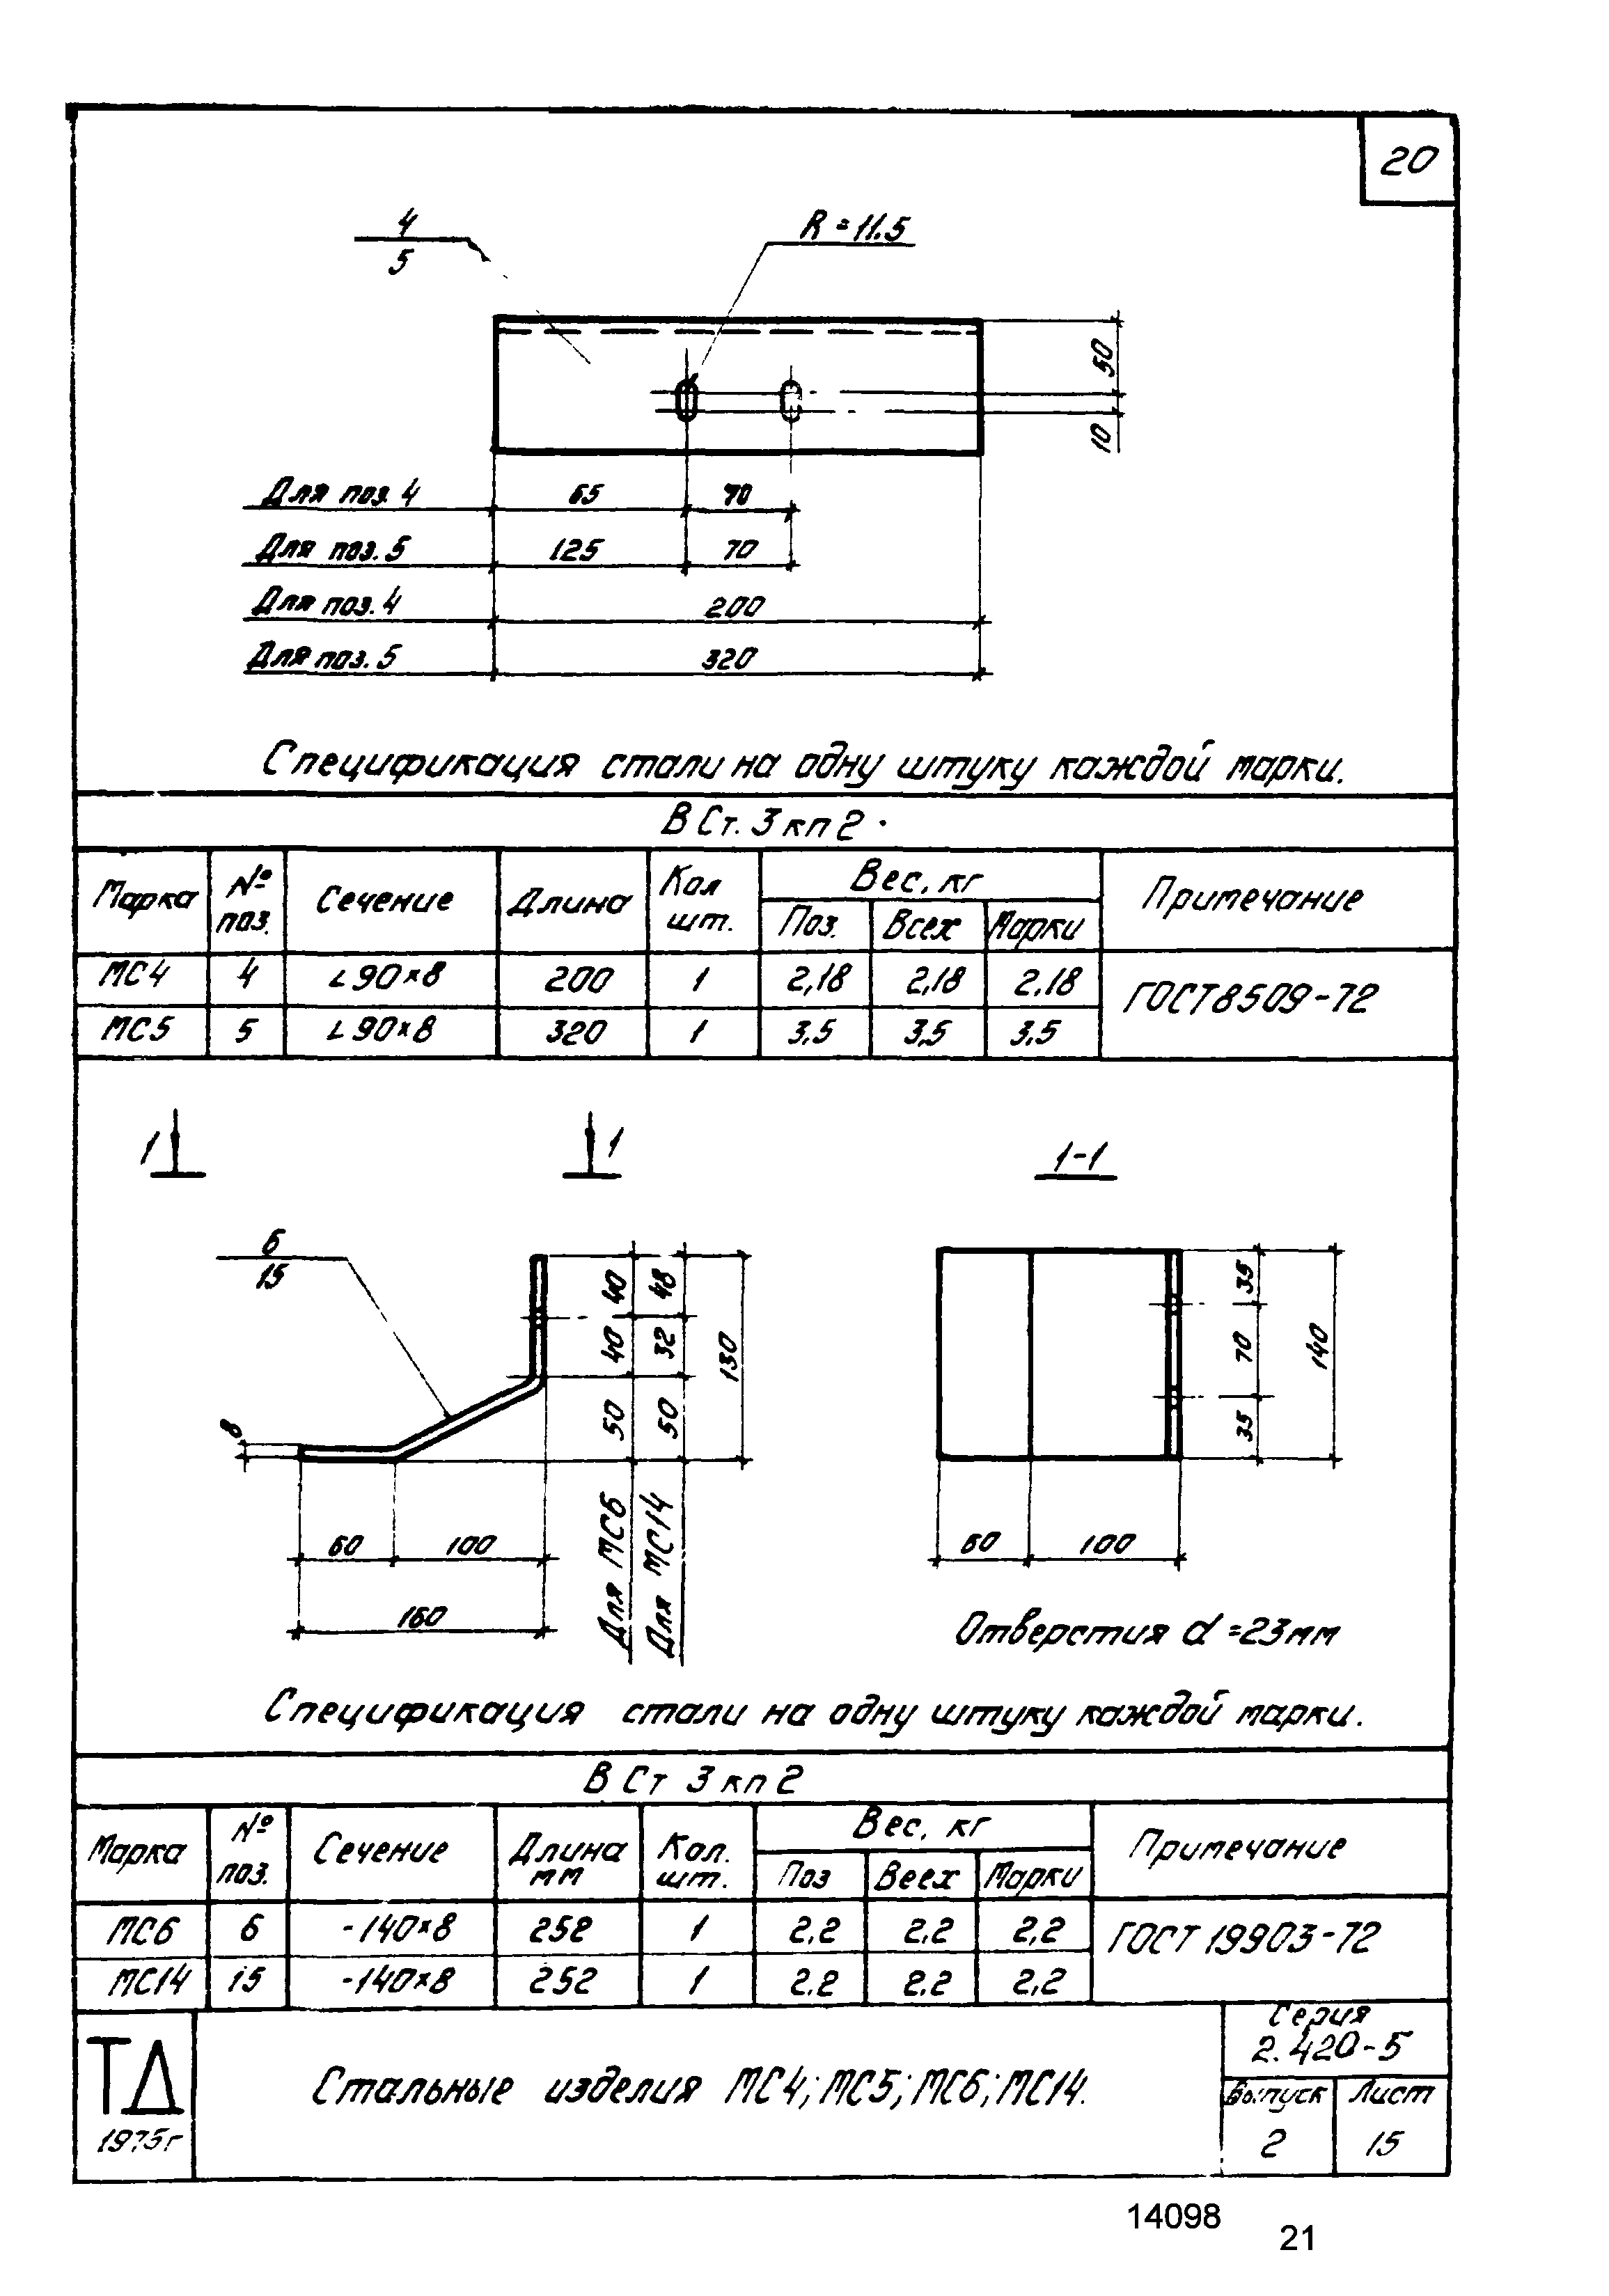 20
4
5
R=11.5
50
10
Для поз. 4 65 70
Для поз. 5 125 70
Для поз. 4 200
Для поз. 5 320
Спецификация стали на одну штуку каждой марки.
В Ст. 3 кп 2
Марка № поз. Сечение Длина Кол шт. Вес, кг Примечание
Поз. Всех Марки
МС4 4 ∟90×8 200 1 2,18 2,18 2,18 ГОСТ 8509-72
МС5 5 ∟90×8 320 1 3,5 3,5 3,5
1 1 1-1
6
15
40 48
40 32 130
50 50
8
60 100
160
Для МС6
Для МС14
35
70 140
35
60 100
Отверстия d=23мм
Спецификация стали на одну штуку каждой марки.
В Ст 3 кп 2
Марка № поз. Сечение Длина мм Кол. шт. Вес, кг Примечание
Поз Всех Марки
МС6 6 -140×8 252 1 2,2 2,2 2,2 ГОСТ 19903-72
МС14 15 -140×8 252 1 2,2 2,2 2,2
ТД
1975г
Стальные изделия МС4; МС5; МС6; МС14.
Серия
2.420-5
Выпуск Лист
2 15
14098
21